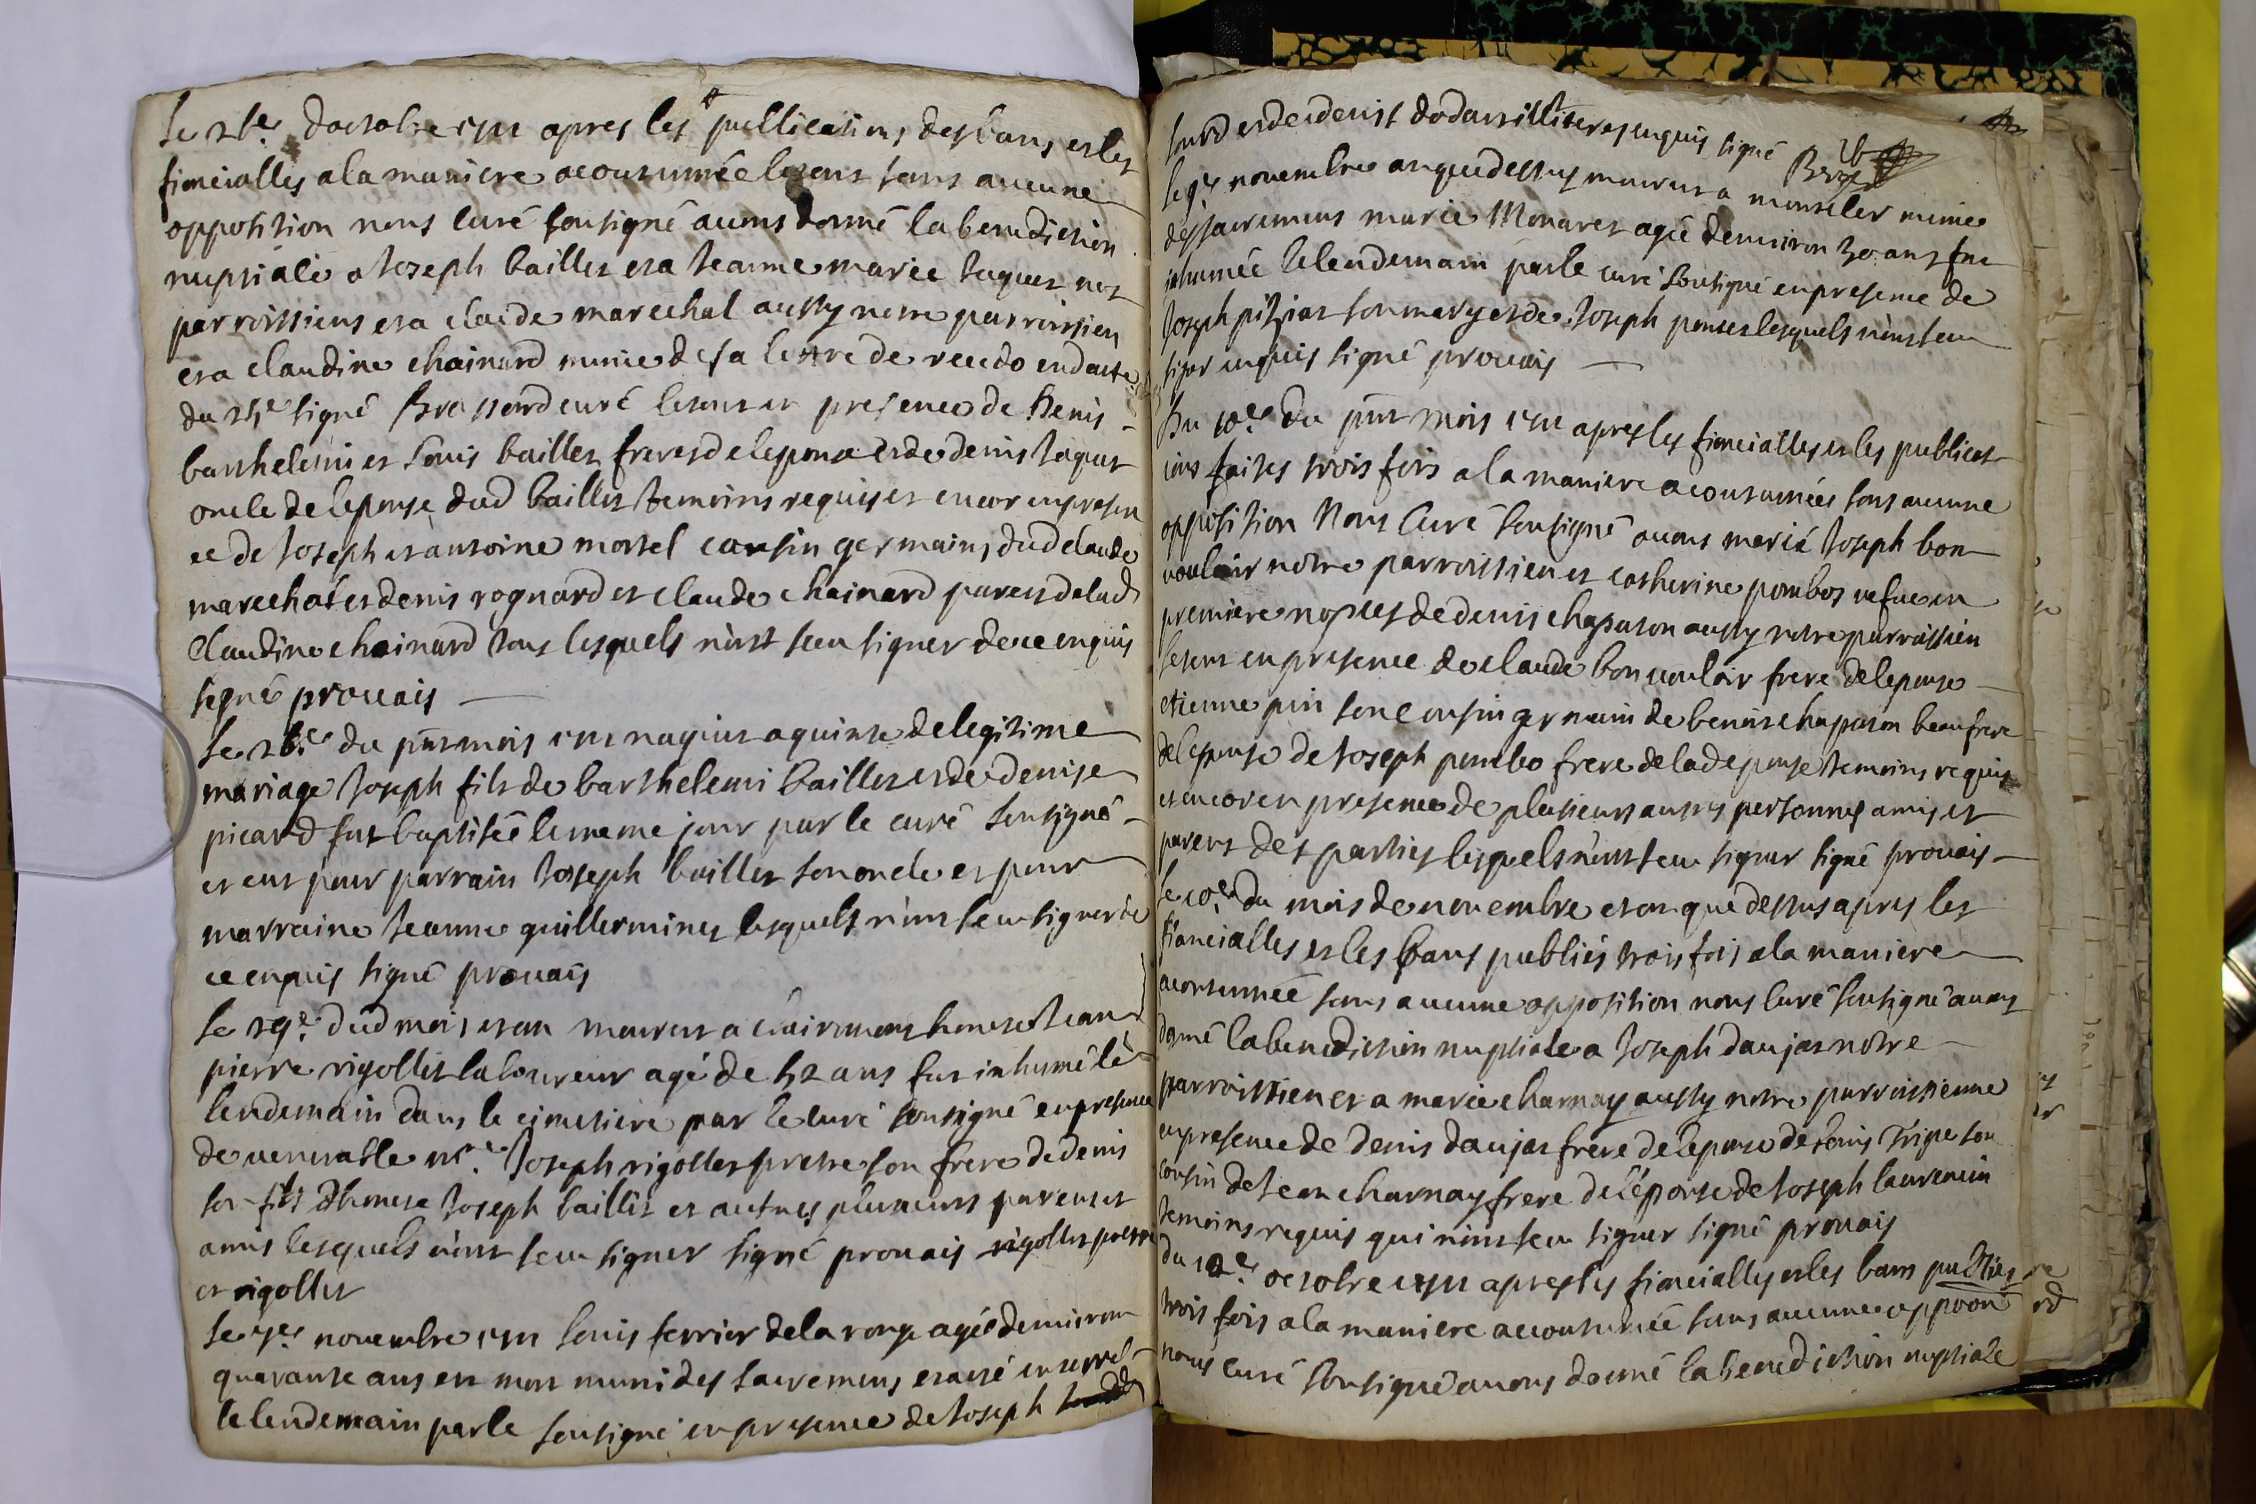 Le 26e d'octobre 1711 apres les publications des bans et les
fiancialles a la maniere acoutumée le tout sans aucune
opposition nous curé soussigné avons donné la benediction
nuptiale a Joseph baillet et a Jeanne marie Jaquet nos
parroissiens et a claude marechal aussy notre parroissien
et a claudine chainard munie de sa lettre de recedo en datte
du signé Brossard curé le tout en presence de
barthelemi et Louis baillet freres de lepoux et de denis Jaquet
oncle de lepouse dud baillet temoins requis et encor en presen
ce de Joseph et antoine mortel cousin germains dud claude
marechal et denis rognard et claude chainard parens de lad
Claudine chainard tous lesquels n'ont sceu signer de ce enquis
signé prouais
Le 26e du pnt mois 1711 naquit a quinte de legitime
mariage Joseph fils de barthelemi baillet et de denise
picard fut baptiséé le meme jour par le curé soussigné
et eut pour parrain Joseph baillet son oncle et pour
marraine Jeanne guillerminet lesquels n'ont sceu signer de
ce enquis signé prouais
Le 29e dud mois et an mourut a clairemont honeste Jean
pierre rigollet laboureur agé de 52 ans fut inhumé le
lendemain dans le cimetiere par le curé soussigné en presence
de venerable mre Joseph rigollet pretre son frere de denis
son fils d'honeste Joseph baillet et autres plusieurs parens et
amis lesquels n'ont sceu signer signé prouais rigollet pretre
et rigollet
Le 7e novembre 1711 Louis ferrier de la ronze agé denviron
quarante ans est mort muni des sacremens et a été enterré
le lendemain par le soussigné en presence de Joseph
et de denis enquis signé
le 9e novembre an que dessus mourut a montceler munie
des sacremens marie Monaret agée denviron 30 ans fut
inhumée le lendemain par le curé soussigné en presence de
Joseph pitiot son mary et de Joseph ponset lesquels n'ont sceu
signer enquis signé prouais
Du 10e du pnt mois 1711 apres les fiancialles et les publicat
ions faites trois fois a la maniere acoutumées sans aucune
opposition Nous Curé soussigné avons marié Joseph bon
vouloir notre parroissien et catherine pombos vefue en
premiere nopces de denis chapason aussy notre parroissien
le tout en presence de claude bonvouloir frere de lepoux
etienne pin son Cousin germain de benoit chapason beaufrere
de lepouse de Joseph pombo frere de lade epouse temoins requis
et encor en presence de plusieurs autres personnes amis et
parens des parties lesquels n'ont sceu signer signé prouais
Le 10e du mois de novembre et an que dessus apres les
fiancialles et les bans publiés trois fois a la maniere
acoutumée sans aucune opposition nous curé soussigné avons
donné la benediction nuptiale a Joseph daujat notre
parroissien et a marie charnay aussy notre parroissienne
en presence de denis daujat frere de lepoux de Louis Tripe son
cousin de Jean charnay frere de l'épouse de Joseph laurencin
temoins requis qui n'ont sceu signer signé prouais
du octobre 1711 apres les fiancialles et les bans publiés
trois fois a la maniere accoutumée sans aucune oppoon
nous curé soussigné avons donné la benediction nuptiale